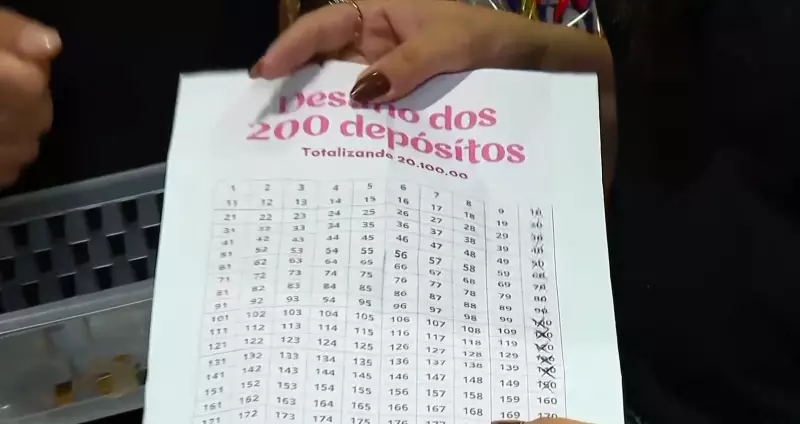 Desafio dos
200 depósitos
Totalizando 20.100.00
1 2 3 4 5 6 7 8 9 10
11 12 13 14 15 16 17 18 19
21 22 23 24 25 26 27 28 29
31 32 33 34 35 36 37 38 39
41 42 43 44 45 46 47 48 49
51 52 53 54 55 56 57 58 59
61 62 63 64 65 66 67 68 69
71 72 73 74 75 76 77 78 79
81 82 83 84 85 86 87 88 89
91 92 93 94 95 96 97 98 99
101 102 103 104 105 106 107 108 109
111 112 113 114 115 116 117 118 119
121 122 123 124 125 126 127 128 129
131 132 133 134 135 136 137 138 139
141 142 143 144 145 146 147 148 149
151 152 153 154 155 156 157 158 159 160
161 162 163 164 165 166 167 168 169 170
171 172 173 174 175 176 177